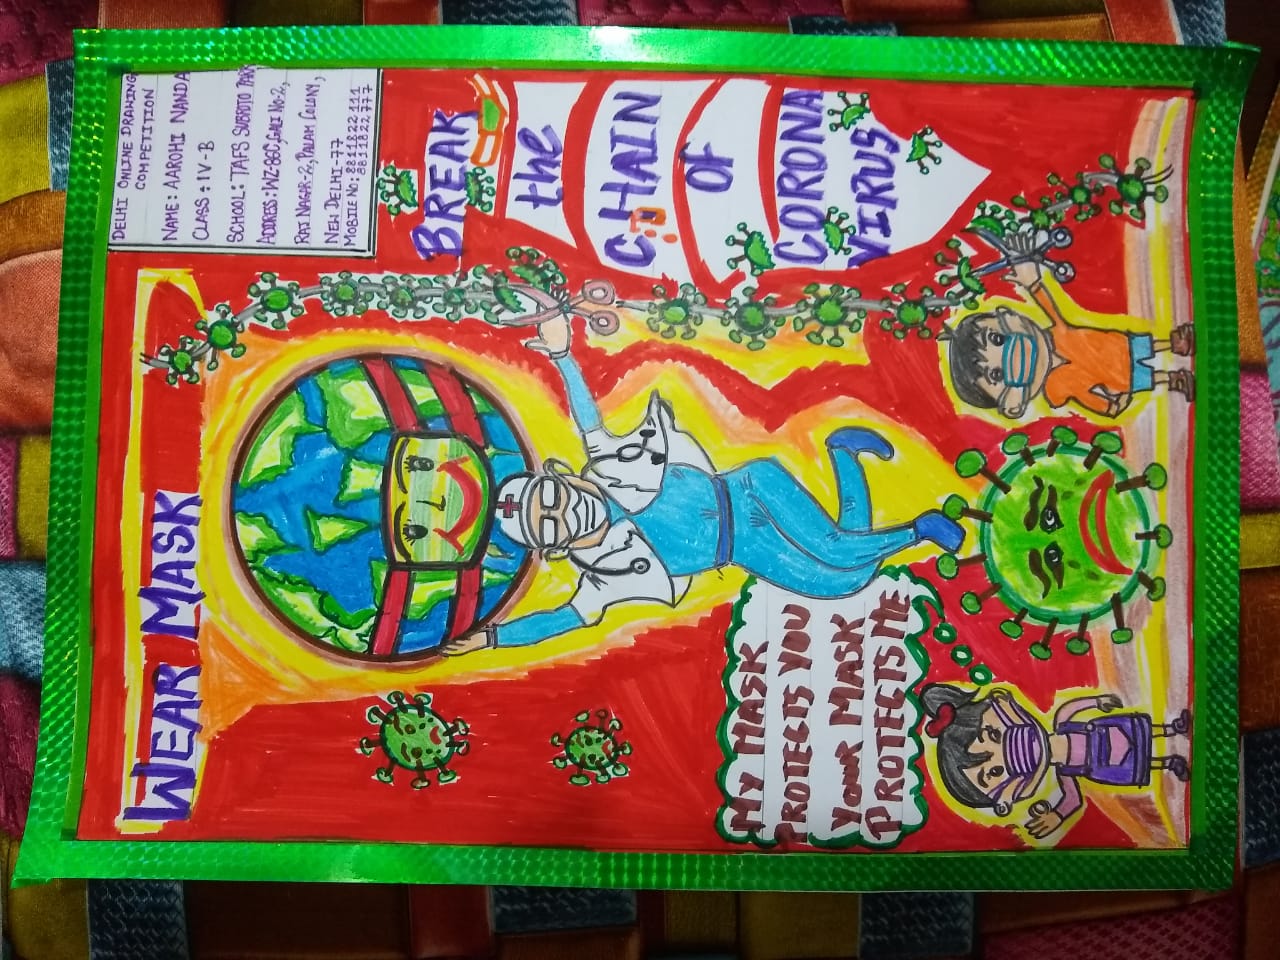 WEAR MASK
DELHI ONLINE DRAWING
COMPETITION
NAME: AAROHI NANDA
CLASS: IV-B
SCHOOL: TAFS SUBROTO PARK
ADDRESS: WZ-86C, GALI NO-2,
RAJ NAGAR-2, PALAM COLONY,
NEW DELHI-77
MOBILE NO: 8811822111
8811822777
BREAK
the
CHAIN
OF
CORONA
VIRUS
MY MASK
PROTECTS YOU
YOUR MASK
PROTECTS ME